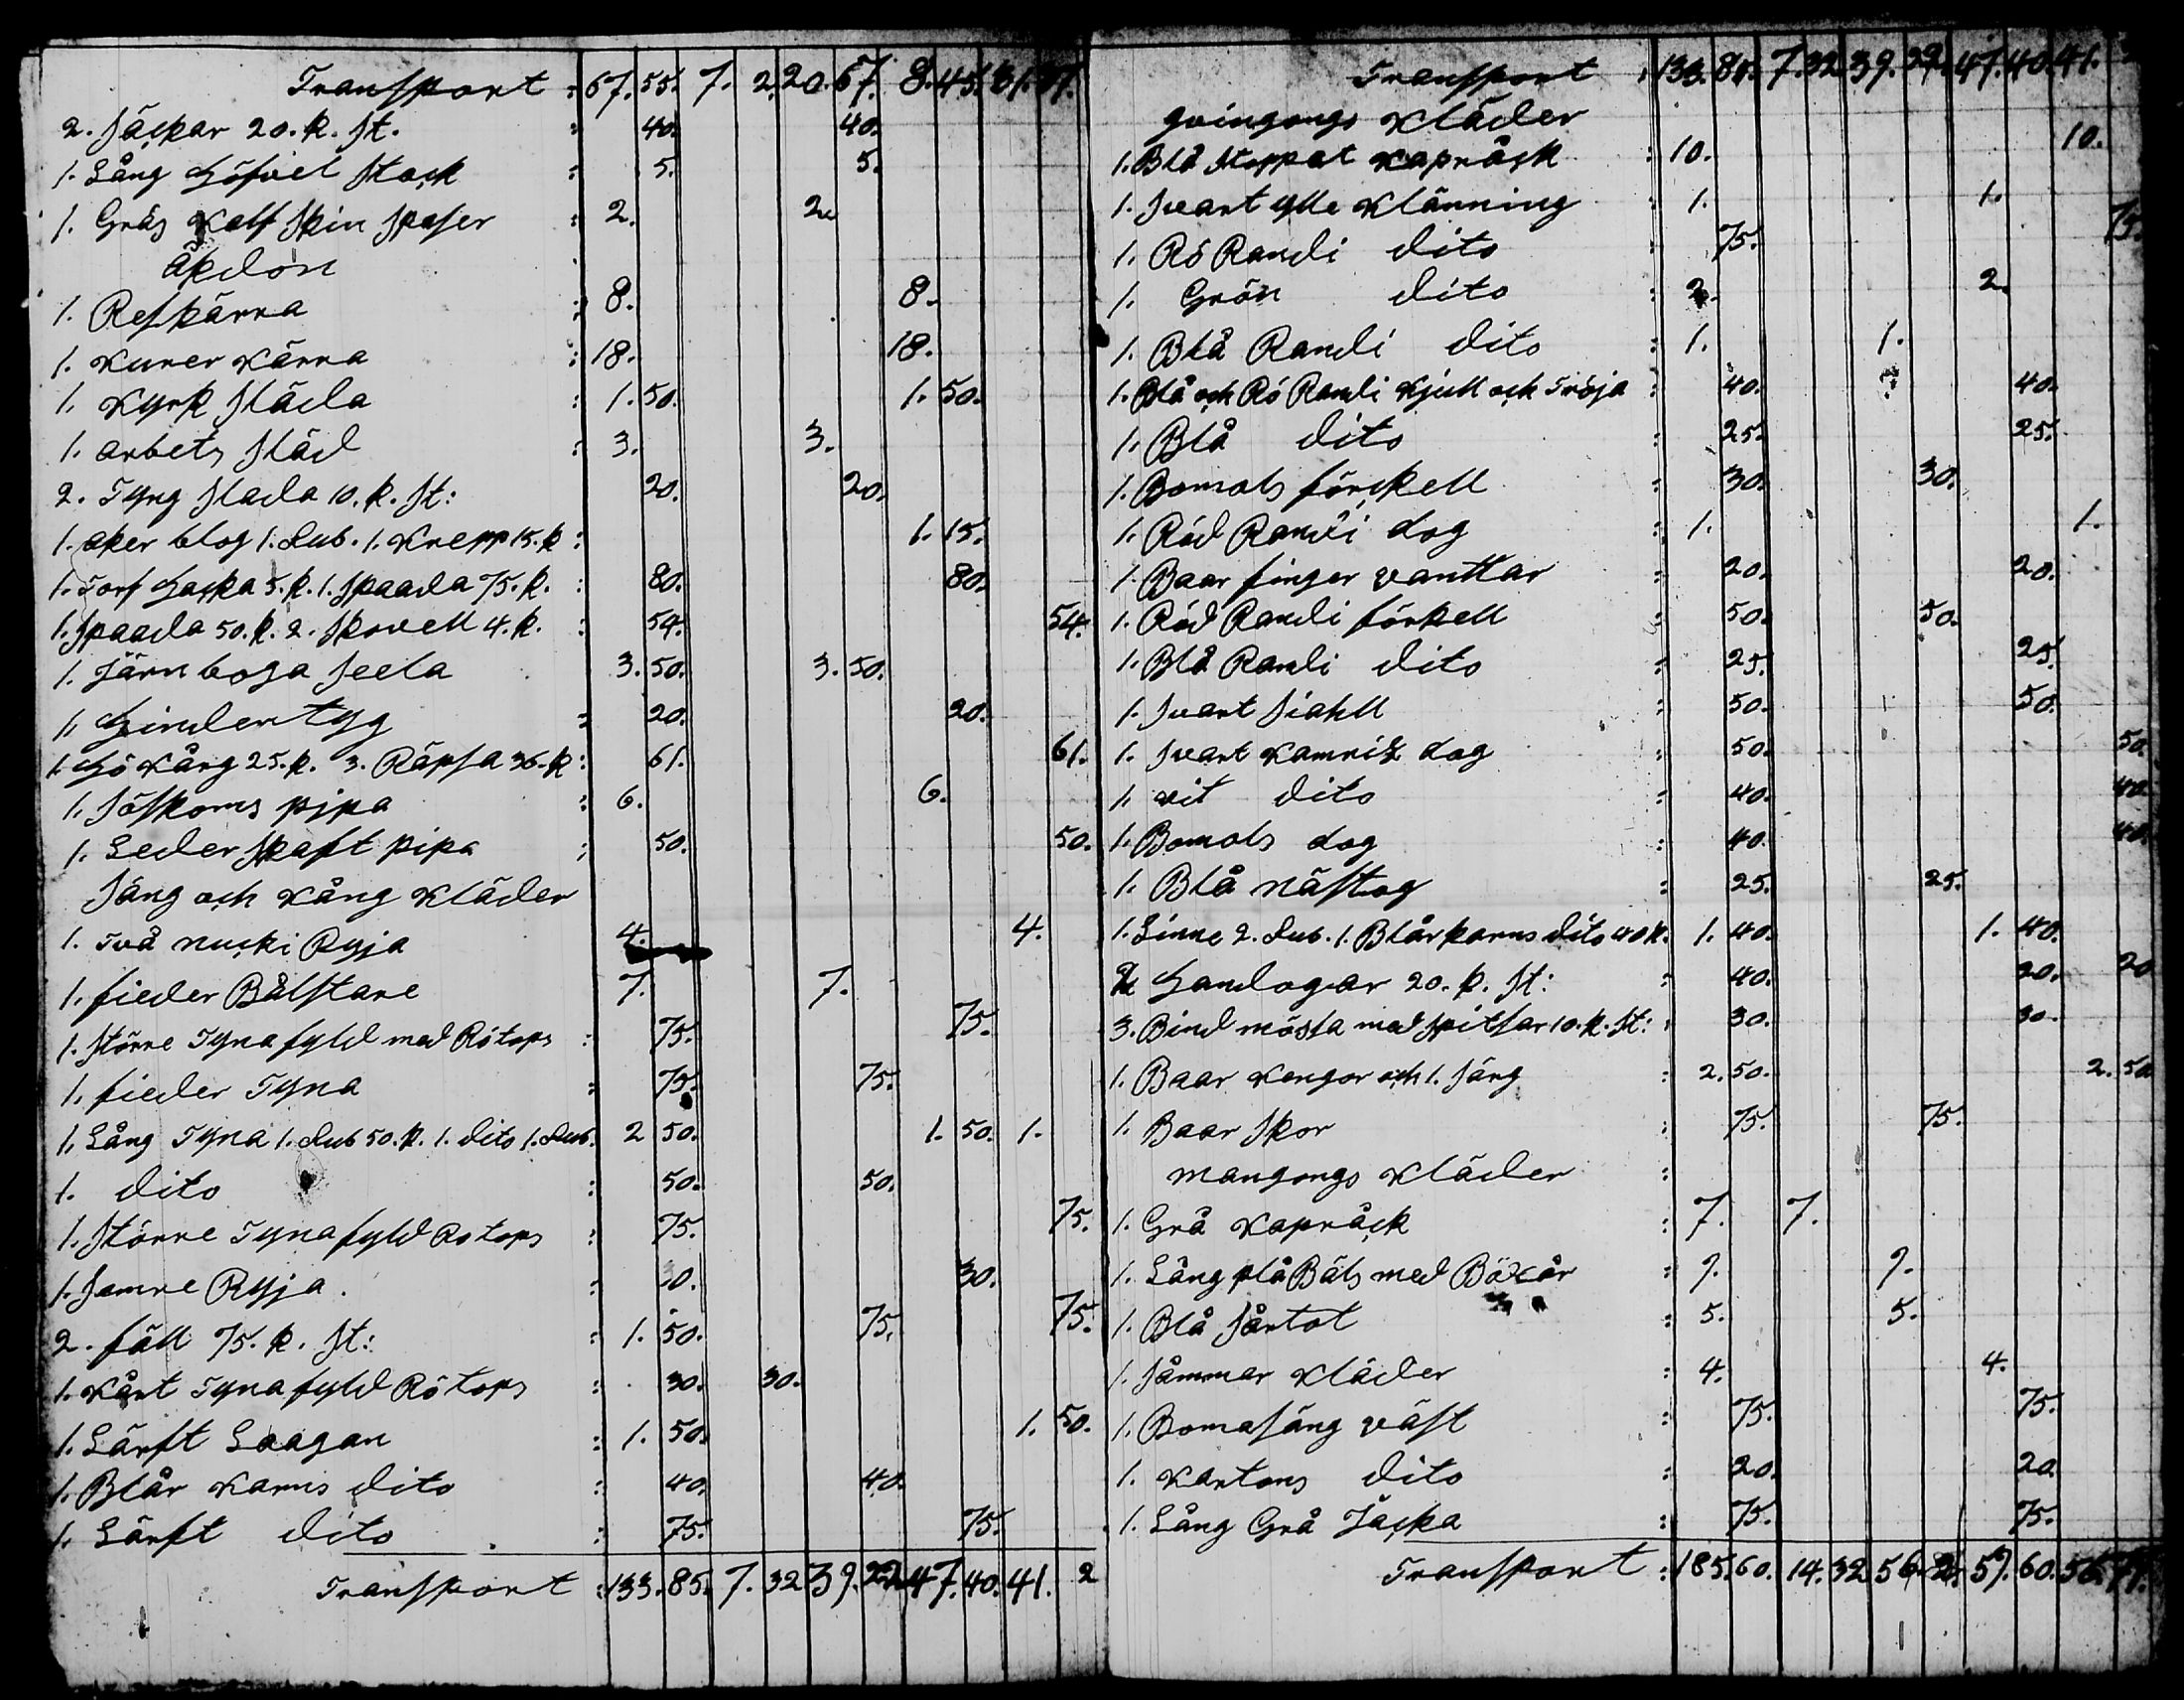 Transport : 67. 55. 7. 2. 20. 67. 8. 45. 31. 37.
2. Jäckar 20. k. st. : 40. 40.
1. Lång Höfvel stock : 5. 5.
1. Gräs Kalf skin : 2. 2.
Åkdon
1. Reskärra : 8. 8.
1. Kurer Kärra : 18. 18.
1. Kyrk släda : 1. 50. 1. 50.
1. arbets släd : 3. 3.
2. Tyng slada 10. k. st: 20. 20.
1. aker blog 1. Rub. 1. Knepp 15. k : 1. 15.
1. Torf Hacka 5. k. 1. spaada 75. k. : 80. 80.
1. spaada 50. k. 2. skovell 4. k. : 54. 54.
1. Järn boga seela 3. 50. 3. 50.
1. Hindertyg : 20. 20.
1. Hö Kårg 25. k. 3. Räpsa 36. k : 61. 61.
1. Jöskoms pipa : 6. 6.
1. Leder skaft pipa : 50. 50.
Säng och Kång Kläder
1. Två nucki Ryja 4. 4.
1. fieder Bålstare 7. 7.
1. större Tyna fyld med Rötops : 75. 75.
1. fieder Tyna : 75. 75.
1. Lång Tyna 1. Rub 50. k. 1. dito 1. Rub. 2 50. 1. 50. 1.
1. dito : 50. 50.
1. större Tyna fyld Rotops : 75. 75.
1. Samre Ryja. : 30. 30.
2. fäll 75. k. st: : 1. 50. 75. 75.
1. Kårt Tyna fyld Rötops : 30. 30.
1. Lärft Laagan : 1. 50. 1. 50.
1. Blår Karns dito : 40. 40.
1. Lärft dito : 75. 75.
Transport : 133. 85. 7. 32 39. 22 47. 40. 41. 2
Transport : 133. 85. 7. 32 39. 22. 47. 40. 41.
qvingongs Kläder
1. Blå stoppat Kapråck : 10. 10.
1. svart ylle Klänning : 1. 1.
1. Rö Randi dito : 75. 75.
1. Grön dito : 2. 2.
1. Blå Randi dito : 1. 1.
1. Blå och Rö Randi Kjull och Tröja : 40. 40.
1. Blå dito : 25. 25.
1. Bomols förckell : 30. 30.
1. Röd Randi dog : 1. 1.
1. Baar finger vanttar : 20. 20.
1. Röd Randi förkell : 50. 50.
1. Blå Randi dito : 25. 25.
1. svart siahll : 50. 50.
1. svart Kamriz dog : 50. 50.
1. vit dito : 40. 40.
1. Bomols dog : 40. 40.
1. Blå näстog : 25. 25.
1. Linne 2. Rub. 1. Blårkarns dito 40 k. 1. 40. 1. 40.
2 Handogar 20. k. st: : 40. 20. 20
3. Bind mössa med spitsar 10. k. st: 30. 30.
1. Baar Kengor och 1. Särg : 2. 50. 2. 50
1. Baar skor : 75. 75.
mangongs Kläder :
1. Grå Kapråck : 7. 7.
1. Lång blå Bäls med Böxår : 9. 9.
1. Blå Sårtot : 5. 5.
1. Såmmar Kläder : 4. 4.
1. Bomasäng väst : 75. 75.
1. Kartons dito : 20. 20
1. Lång Grå Jäcka : 75. 75.
Transport : 185. 60. 14. 32 56. 2. 57. 60. 56. 77.